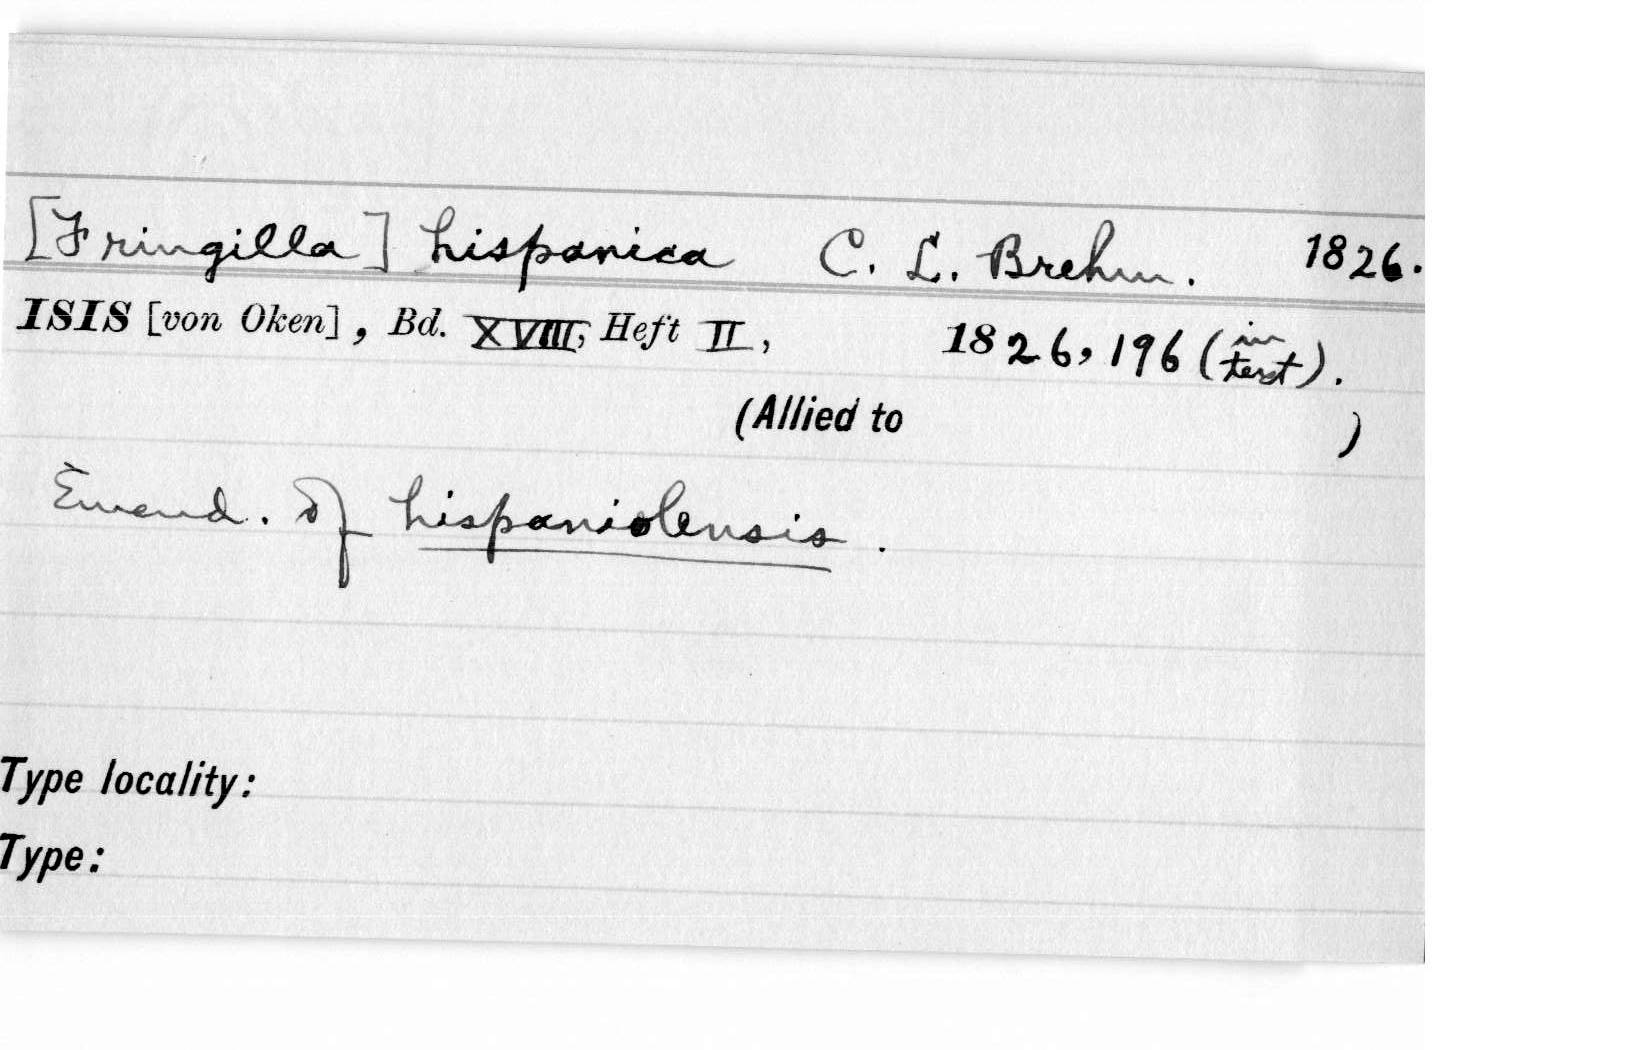 [Fringilla] hispanica C. L. Brehm. 1826.
ISIS [von Oken], Bd. XVIII, Heft II, 1826, 196 (in text).
(Allied to )
Emend. of hispaniolensis.
Type locality:
Type: